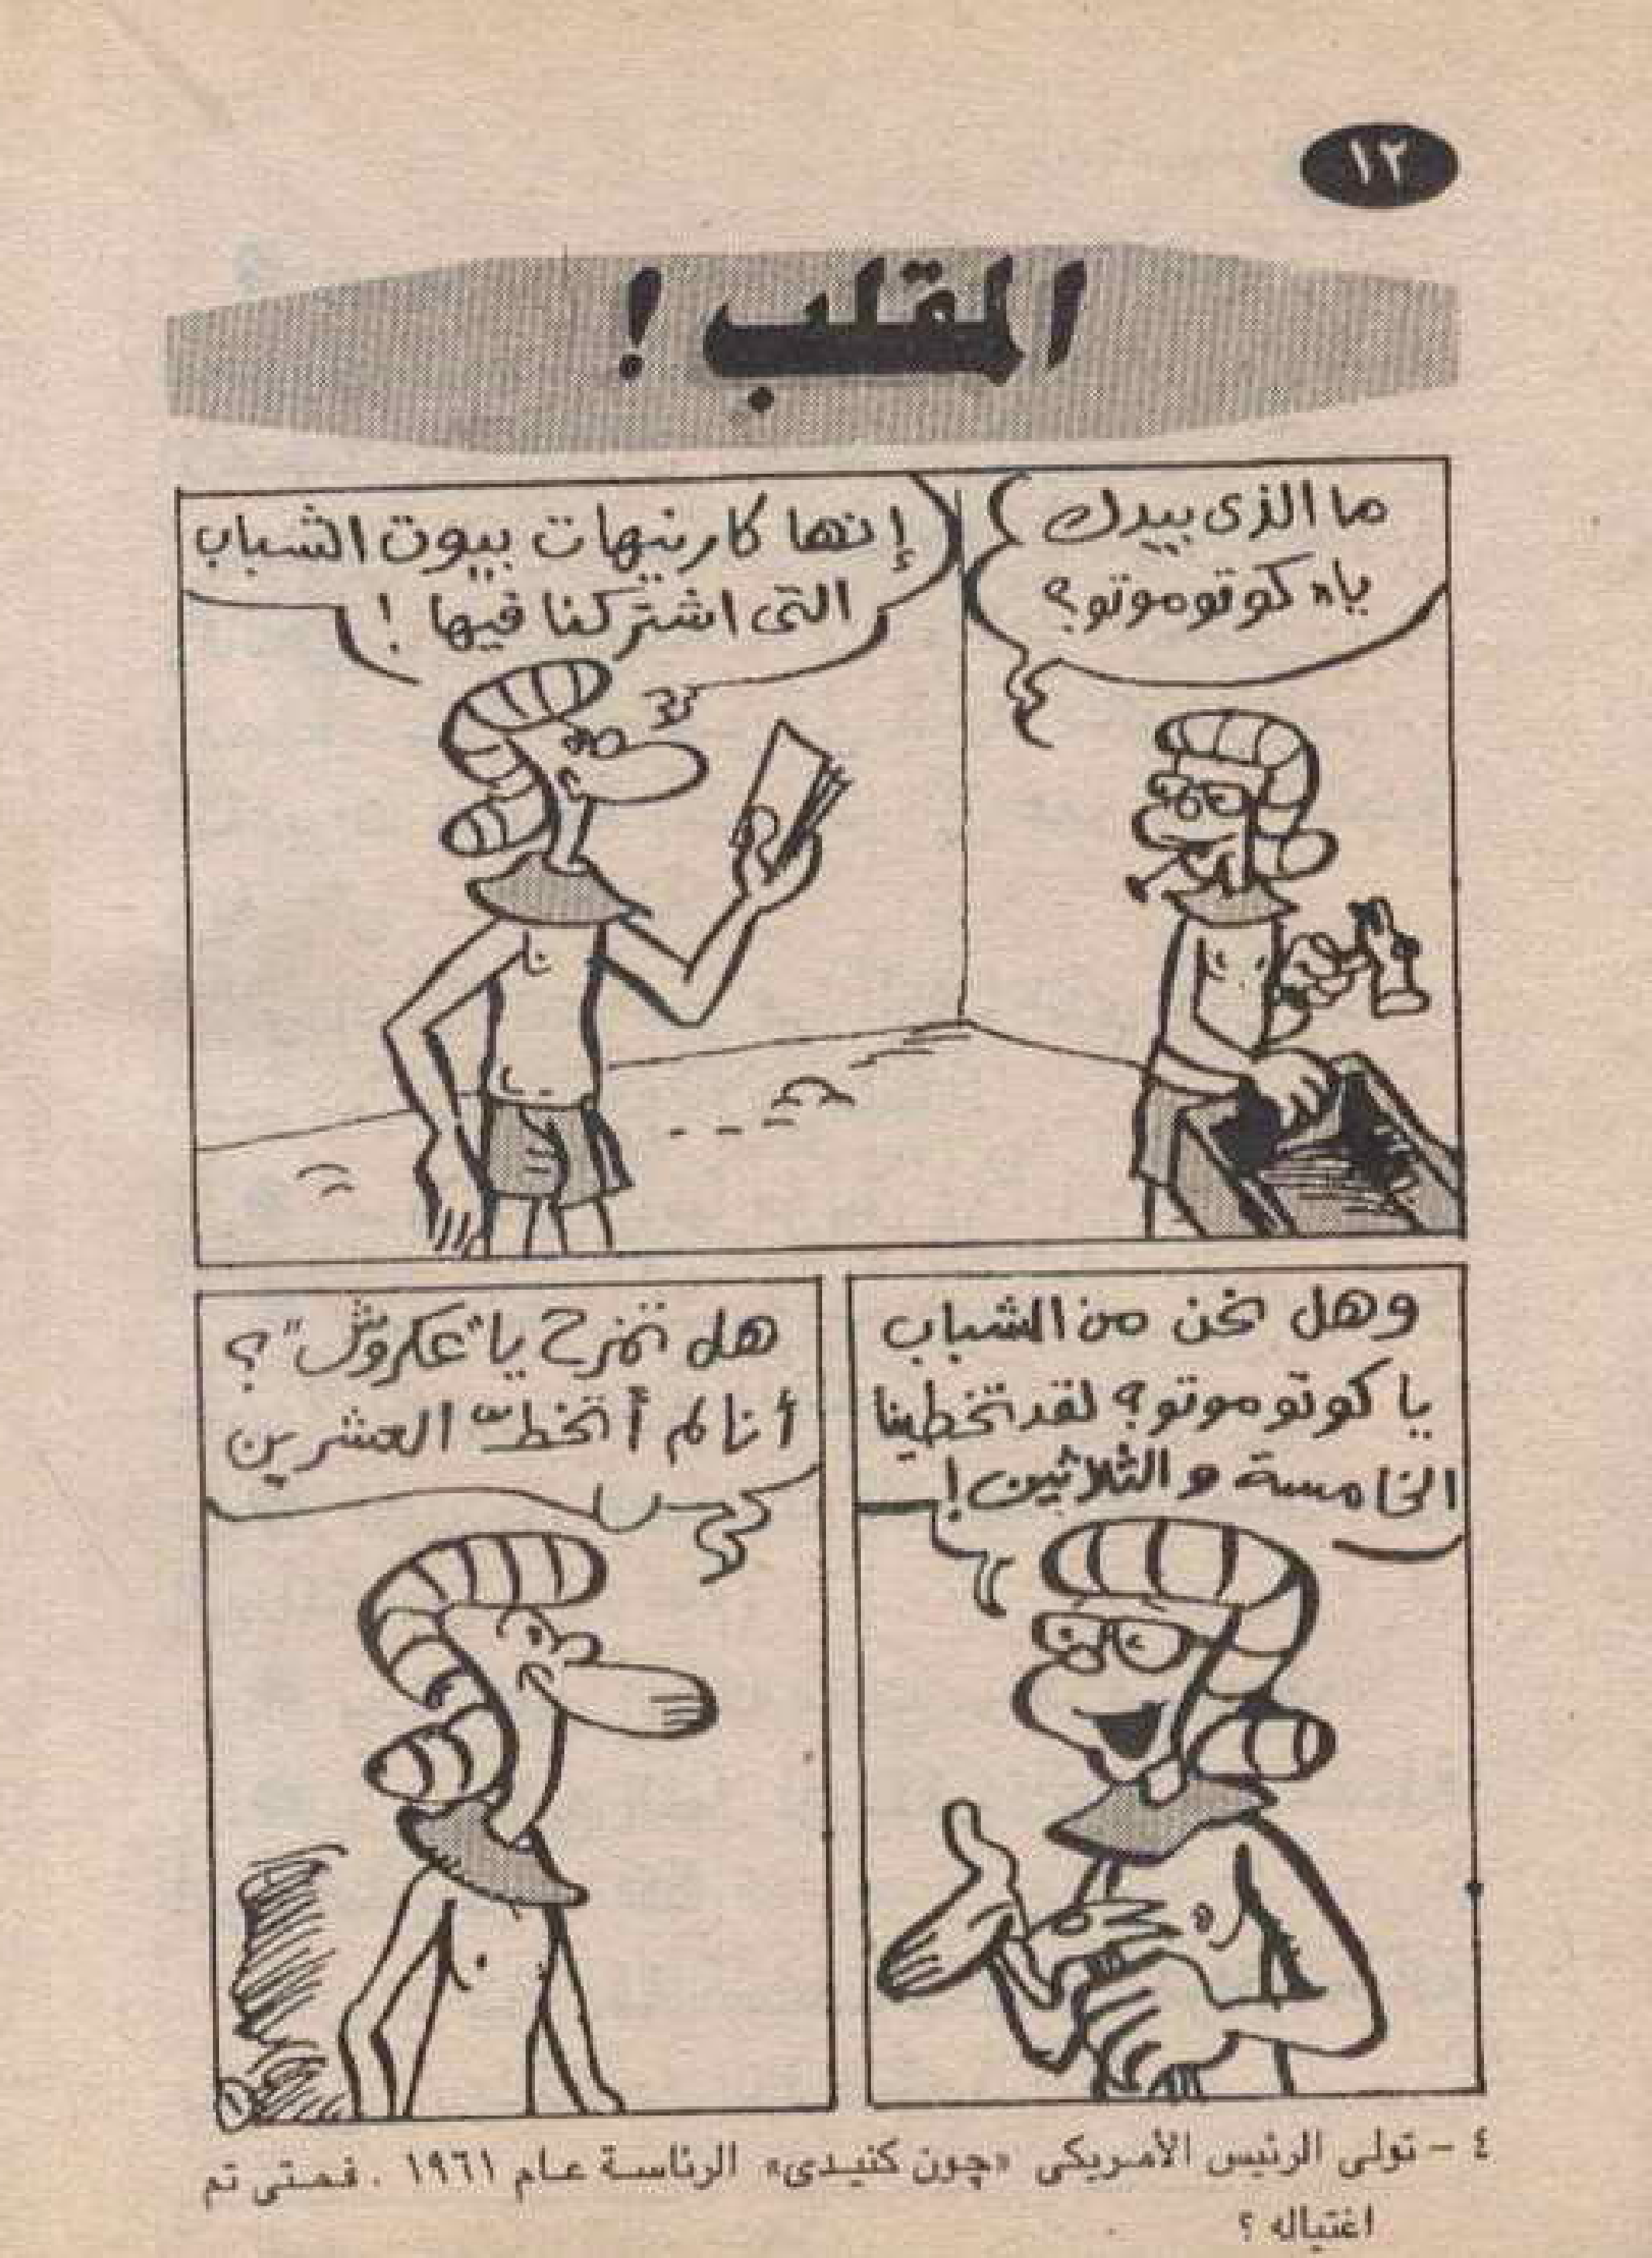 ١٢
المقلب !
ما الذى بيدك
يا "كوتوموتو؟
إنها كارنيهات بيوت الشباب
التى اشتركنا فيها !
وهل نحن من الشباب
يا كوتوموتو؟ لقد تخطينا
الخامسة والثلاثين!
هل تمزح يا"عكروش"؟
أنا لم أتخطّ العشرين
٤ - تولى الرئيس الأمريكى «چون كنيدى» الرئاسة عام ١٩٦١ . فمتى تم
اغتياله ؟